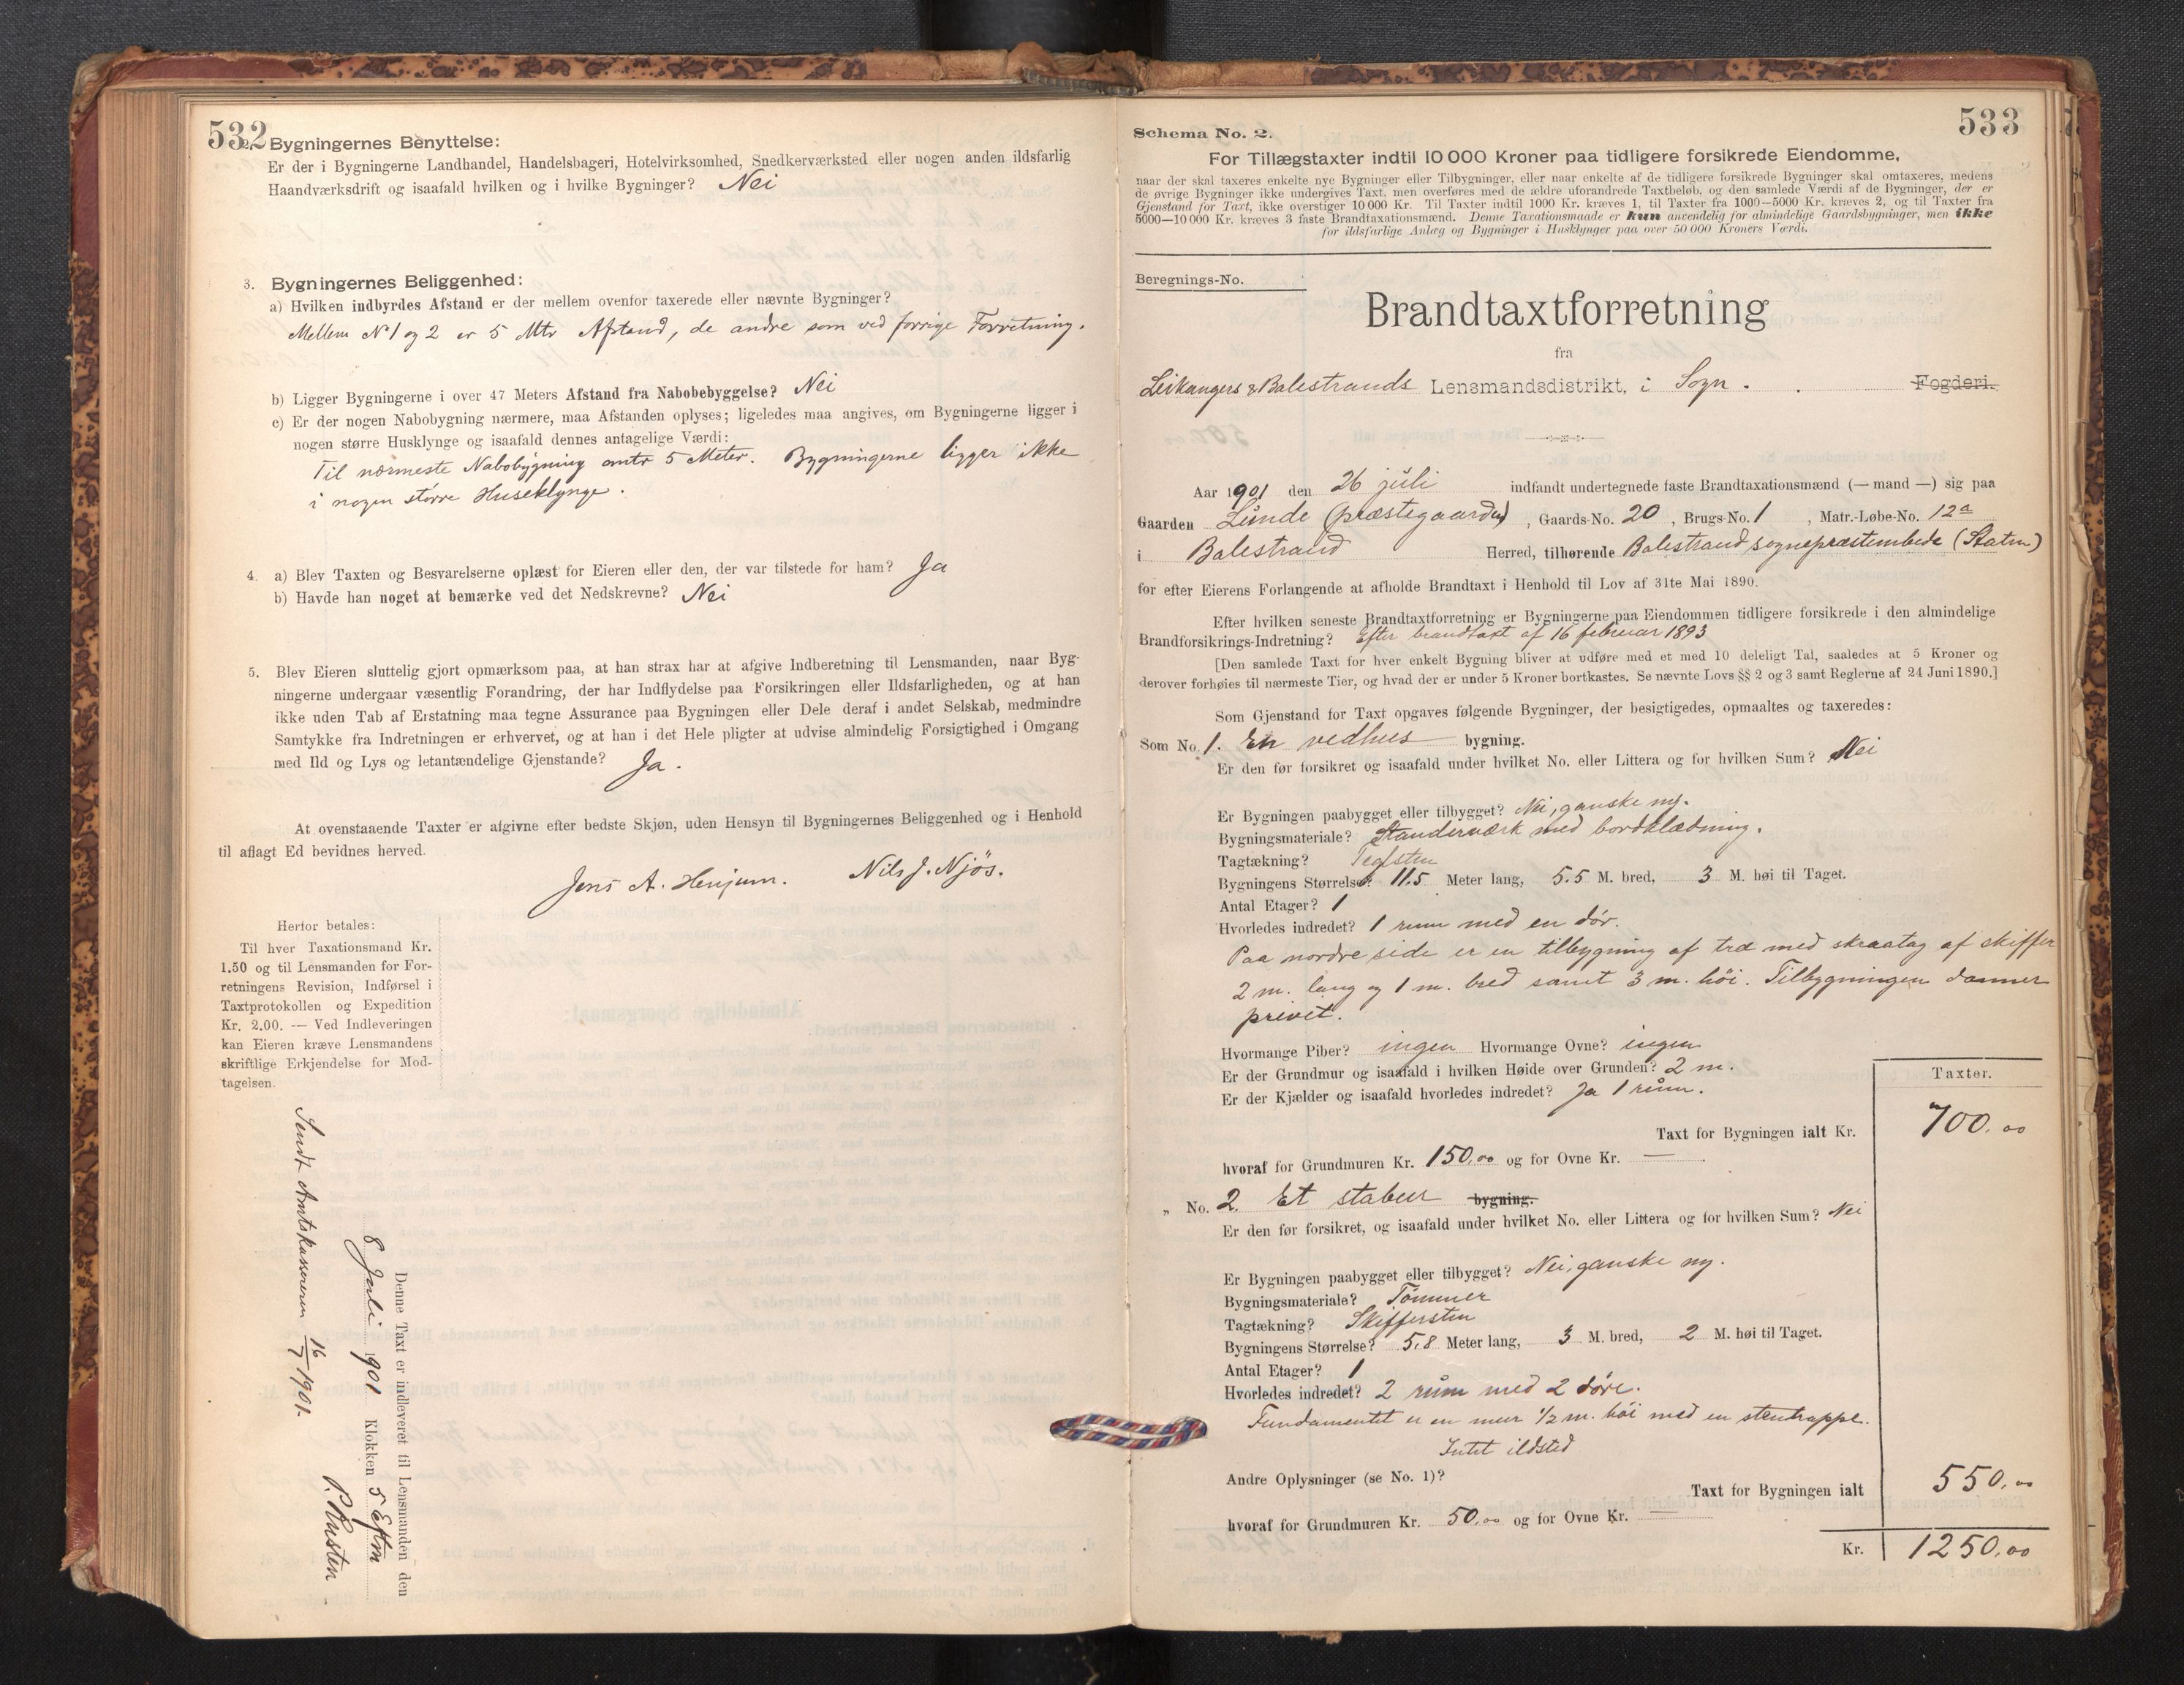 532
2. Bygningernes Benyttelse:
Er der i Bygningerne Landhandel, Handelsbageri, Hotelvirksomhed, Snedkerværksted eller nogen anden ildsfarlig
Haandværksdrift og isaafald hvilken og i hvilke Bygninger? Nei
3. Bygningernes Beliggenhed:
a) Hvilken indbyrdes Afstand er der mellem ovenfor taxerede eller nævnte Bygninger?
Mellem No 1 og 2 er 5 Mtr Afstand, de andre som ved forrige Forretning.
b) Ligger Bygningerne i over 47 Meters Afstand fra Nabobebyggelse? Nei
c) Er der nogen Nabobygning nærmere, maa Afstanden oplyses; ligeledes maa angives, om Bygningerne ligger i
nogen større Husklynge og isaafald dennes antagelige Værdi:
Til nærmeste Nabobygning omtr 5 Meter. Bygningerne ligger ikke
i nogen større Huseklynge.
4. a) Blev Taxten og Besvarelserne oplæst for Eieren eller den, der var tilstede for ham? Ja
b) Havde han noget at bemærke ved det Nedskrevne? Nei
5. Blev Eieren sluttelig gjort opmærksom paa, at han strax har at afgive Indberetning til Lensmanden, naar Byg-
ningerne undergaar væsentlig Forandring, der har Indflydelse paa Forsikringen eller Ildsfarligheden, og at han
ikke uden Tab af Erstatning maa tegne Assurance paa Bygningen eller Dele deraf i andet Selskab, medmindre
Samtykke fra Indretningen er erhvervet, og at han i det Hele pligter at udvise almindelig Forsigtighed i Omgang
med Ild og Lys og letantændelige Gjenstande? Ja.
At ovenstaaende Taxter er afgivne efter bedste Skjøn, uden Hensyn til Bygningernes Beliggenhed og i Henhold
til aflagt Ed bevidnes herved.
Jens A. Henjum. Nils J. Njøs.
Herfor betales:
Til hver Taxationsmand Kr.
1.50 og til Lensmanden for For-
retningens Revision, Indførsel i
Taxtprotokollen og Expedition
Kr. 2.00. — Ved Indleveringen
kan Eieren kræve Lensmandens
skriftlige Erkjendelse for Mod-
tagelsen.
Denne Taxt er indleveret til Lensmanden den
8 Juli 1901 Klokken 5 Eftm
P. Husten
Sendt Amtskassereren 16/7 1901.
533
Schema No. 2.
For Tillægstaxter indtil 10 000 Kroner paa tidligere forsikrede Eiendomme,
naar der skal taxeres enkelte nye Bygninger eller Tilbygninger, eller naar enkelte af de tidligere forsikrede Bygninger skal omtaxeres, medens
de øvrige Bygninger ikke undergives Taxt, men overføres med de ældre uforandrede Taxtbeløb, og den samlede Værdi af de Bygninger, der er
Gjenstand for Taxt, ikke overstiger 10 000 Kr. Til Taxter indtil 1000 Kr. kræves 1, til Taxter fra 1000—5000 Kr. kræves 2, og til Taxter fra
5000—10 000 Kr. kræves 3 faste Brandtaxationsmænd. Denne Taxationsmaade er kun anvendelig for almindelige Gaardsbygninger, men ikke
for ildsfarlige Anlæg og Bygninger i Husklynger paa over 50 000 Kroners Værdi.
Beregnings-No.
Brandtaxtforretning
fra
Leikangers & Balestrands Lensmandsdistrikt, i Sogn. Fogderi.
Aar 1901 den 26 juli indfandt undertegnede faste Brandtaxationsmænd (— mand —) sig paa
Gaarden Lunde (præstegaarden), Gaards-No. 20, Brugs-No. 1, Matr.-Løbe-No. 12a
i Balestrand Herred, tilhørende Balestrand sognepræstembede (Staten)
for efter Eierens Forlangende at afholde Brandtaxt i Henhold til Lov af 31te Mai 1890.
Efter hvilken seneste Brandtaxtforretning er Bygningerne paa Eiendommen tidligere forsikrede i den almindelige
Brandforsikrings-Indretning? Efter brandtaxt af 16 februar 1893
[Den samlede Taxt for hver enkelt Bygning bliver at udføre med et med 10 deleligt Tal, saaledes at 5 Kroner og
derover forhøies til nærmeste Tier, og hvad der er under 5 Kroner bortkastes. Se nævnte Lovs §§ 2 og 3 samt Reglerne af 24 Juni 1890.]
Som Gjenstand for Taxt opgaves følgende Bygninger, der besigtigedes, opmaaltes og taxeredes:
Som No. 1. En vedhus bygning.
Er den før forsikret og isaafald under hvilket No. eller Littera og for hvilken Sum? Nei
Er Bygningen paabygget eller tilbygget? Nei, ganske ny.
Bygningsmateriale? Standerværk med bordklædning.
Tagtækning? Teglsten
Bygningens Størrelse? 11.5 Meter lang, 5.5 M. bred, 3 M. høi til Taget.
Antal Etager? 1
Hvorledes indredet? 1 rum med en dør.
Paa nordre side er en tilbygning af træ med skraatag af skiffer
2 m. lang og 1 m. bred samt 3 m. høi. Tilbygningen danner
privet.
Hvormange Piber? ingen Hvormange Ovne? ingen
Er der Grundmur og isaafald i hvilken Høide over Grunden? 2 m.
Er der Kjælder og isaafald hvorledes indredet? Ja 1 rum.
Taxter.
Taxt for Bygningen ialt Kr. 700.00
hvoraf for Grundmuren Kr. 150.00 og for Ovne Kr. —
„ No. 2. Et stabur bygning.
Er den før forsikret, og isaafald under hvilket No. eller Littera og for hvilken Sum? Nei
Er Bygningen paabygget eller tilbygget? Nei, ganske ny.
Bygningsmateriale? Tømmer
Tagtækning? Skiffersten
Bygningens Størrelse? 5.8 Meter lang, 3 M. bred, 2 M. høi til Taget.
Antal Etager? 1
Hvorledes indredet? 2 rum med 2 døre.
Fundamentet er en mur 1/2 m. høi med en stentrappe.
Intet ildsted
Andre Oplysninger (se No. 1)?
Taxt for Bygningen ialt 550.00
hvoraf for Grundmuren Kr. 50.00 og for Ovne Kr. —
Kr. 1250.00